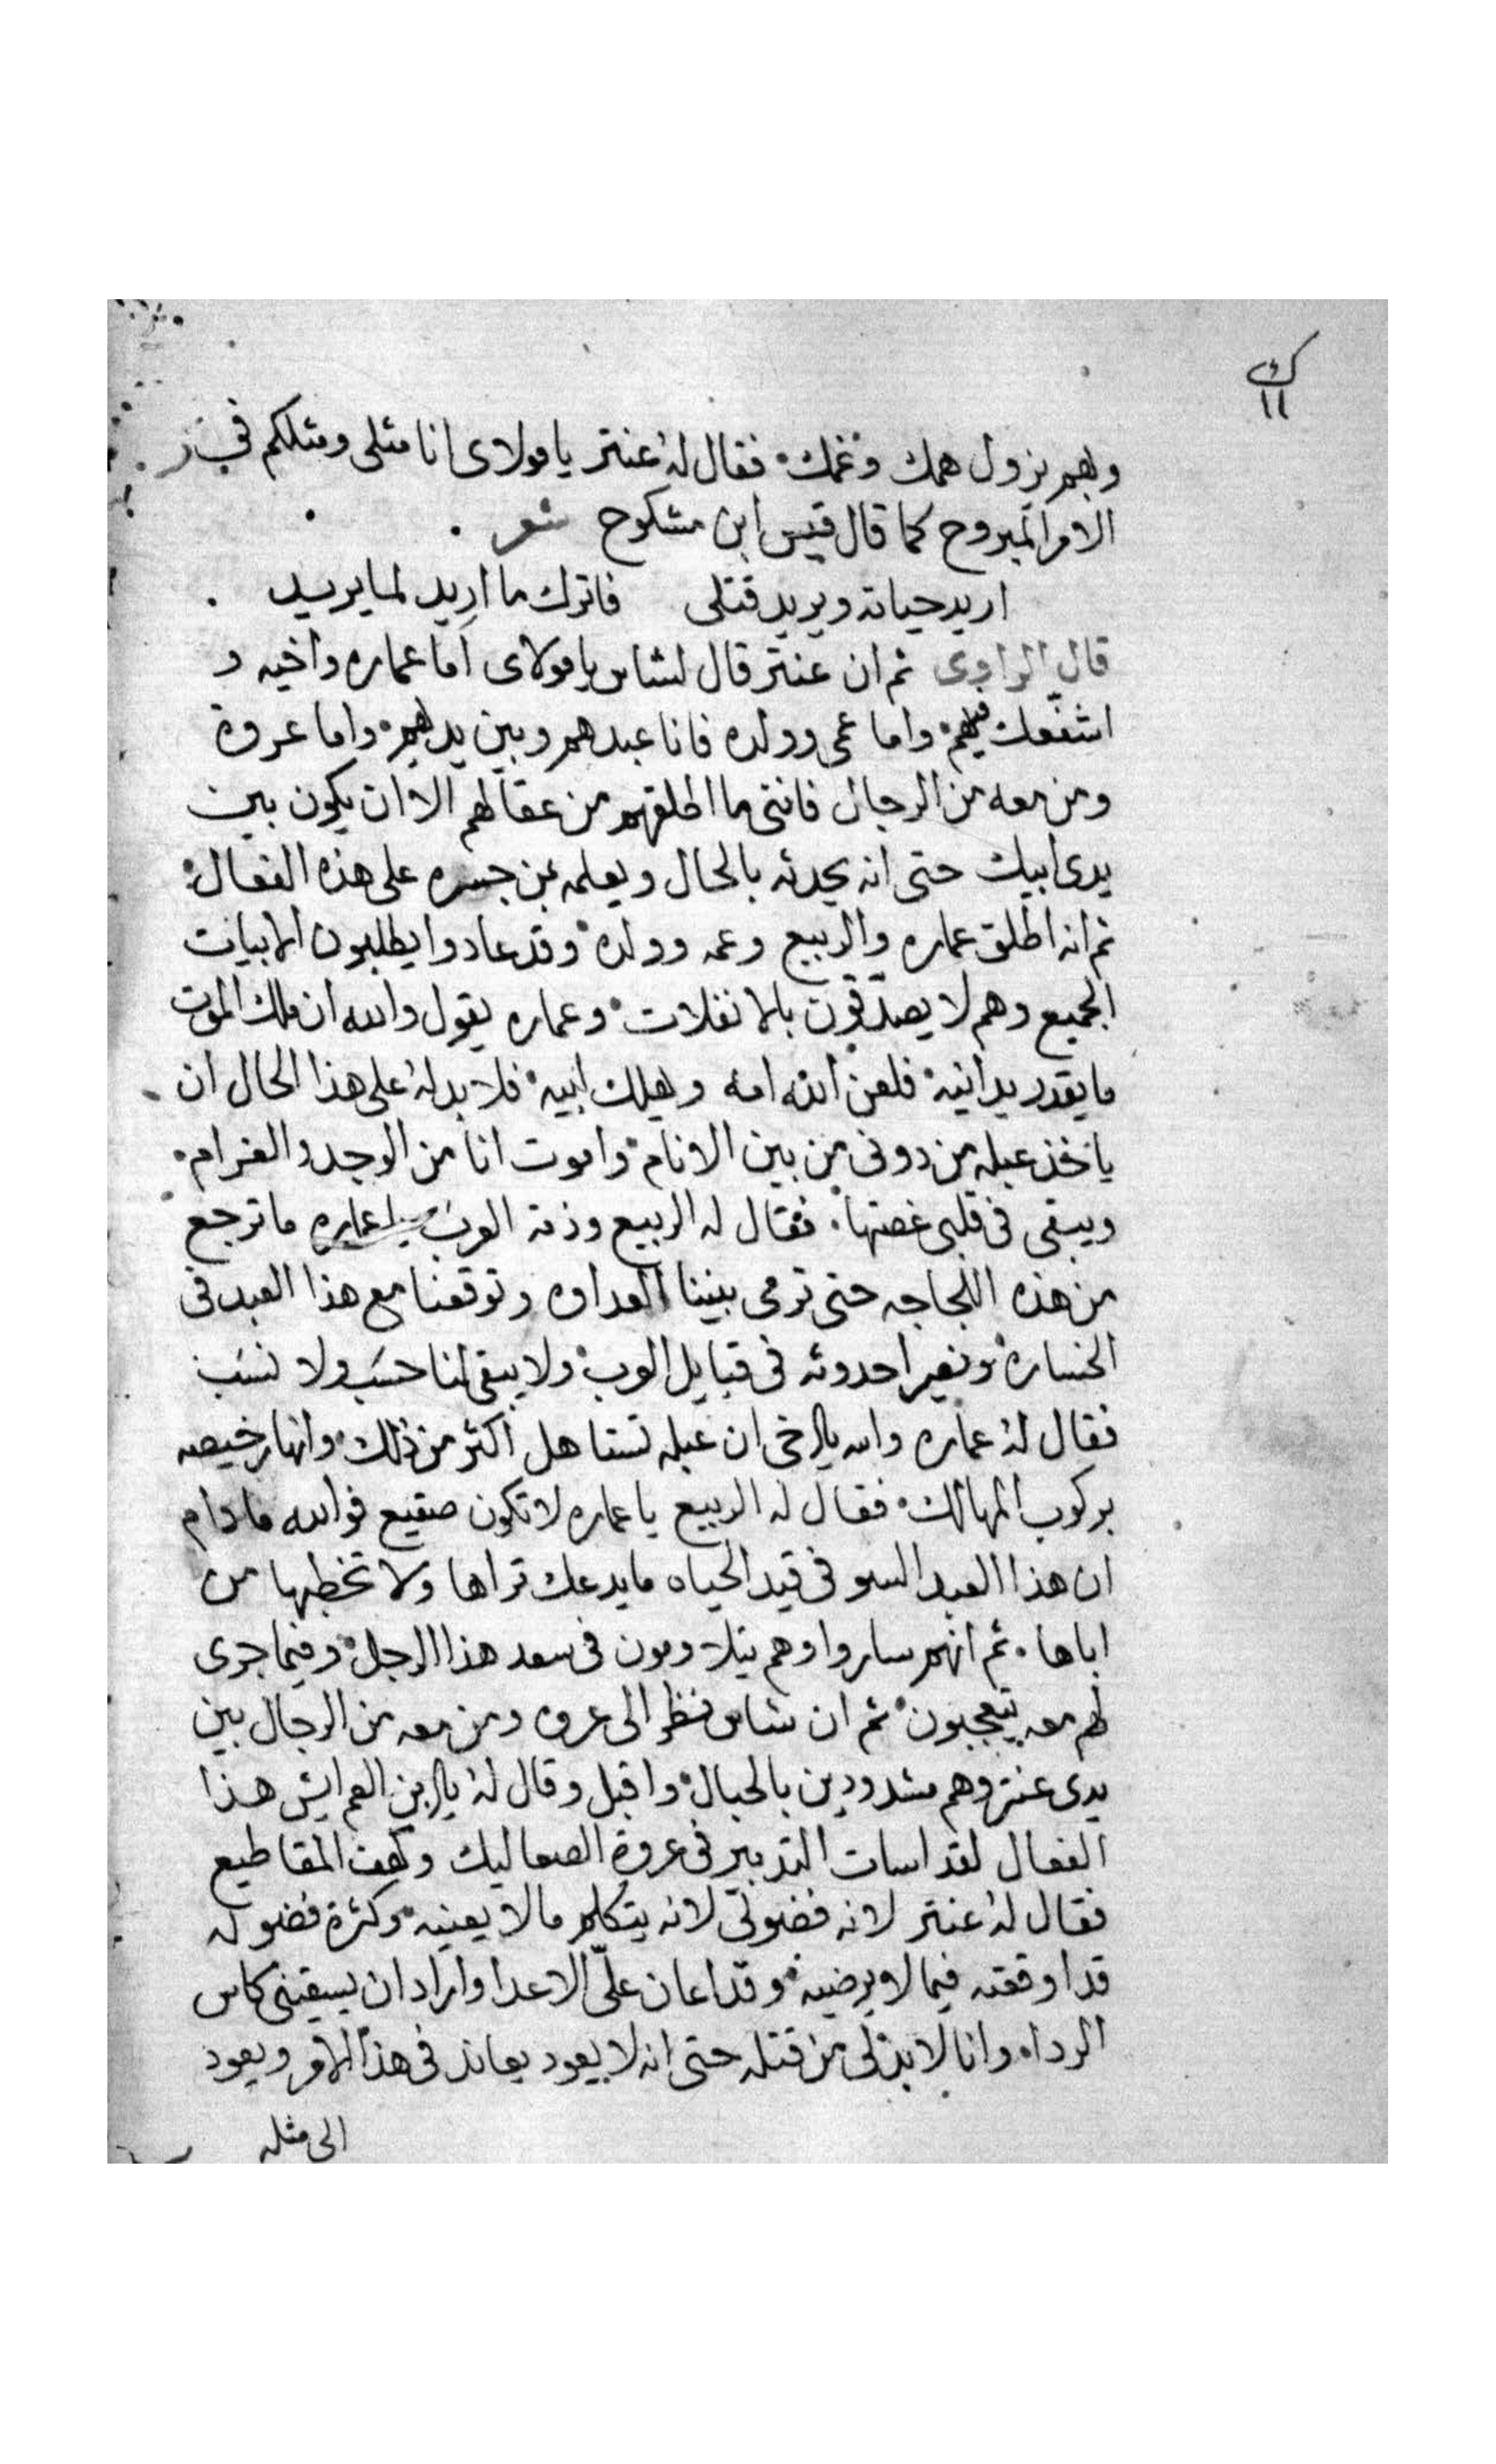 ك
١١
وبهم يزول همك وغمك فقال له عنتر يا مولاى انا مثلى ومثلكم فى
الامر المبروح كما قال قيس ابن مشكوح شعر
اريد حياته ويريد قتلى فاترك ما اريد لما يريد
قال الراوى ثم ان عنتر قال لشاس يا مولاى اما عماره واخيه و
اشفعك فيهم واما عمى وولده فانا عبدهم وبين يديهم واما عروة
ومن معه من الرجال فانني ما اطلقهم من عقالهم الا ان يكون بين
يدى ابيك حتى انه يحدثه بالحال ويعلمه من جسره على هذه الفعال
ثم انه اطلق عماره والربيع وعمه وولده وقد عادوا يطلبون الابيات
الجميع وهم لا يصدقون بالانفلات وعماره يقول والله ان ملك الموت
ما يقدر يدانيه فلعن الله امه وهلك ابيه فلا بد له على هذا الحال ان
ياخذ عبله من دونى من بين الانام واموت انا من الوجد والغرام
ويبقى فى قلبى غصتها فقال له الربيع وذمة العرب يا عماره ما ترجع
من هذه اللجاجه حتى ترمى بيننا العداوه وتوقعنا مع هذا العبد فى
الخساره ونصير احدوثه فى قبايل العرب ولا يبقى لنا حسب ولا نسب
فقال له عماره والله يا اخى ان عبله تستاهل اكثر من ذلك وانها رخيصه
بركوب المهالك فقال له الربيع يا عماره لا تكون صقيع فوالله ما دام
ان هذا العبد السو فى قيد الحياه ما يدعك تراها ولا تخطبها من
اباها ثم انهم ساروا وهم يتلاومون فى سعد هذا الرجل وفيما جرى
لهم معه يتعجبون ثم ان شاس نظر الى عروه ومن معه من الرجال بين
يدى عنتر وهم مشدودين بالحبال واقبل وقال له يا ابن العم ايش هذا
الفعال لقد اسات التدبير فى عروة الصعاليك وكهف المقاطيع
فقال له عنتر لانه فضولى لانه يتكلم ما لا يعنيه وكثرة فضوله
قد اوقعته فيما لا يرضيه وقد اعان علىّ الاعدا واراد ان يسقينى كاس
الرداه وانا لا بد لى من قتله حتى انه لا يعود يعاند فى هذا الامر ويعود
الى مثله